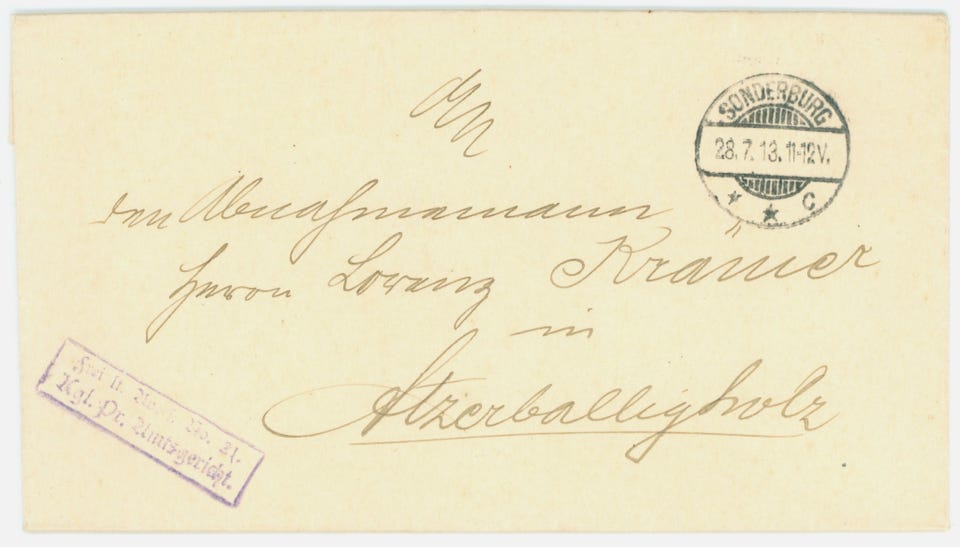 SONDERBURG
28.7.13.11-12V.
* * C
An
den Abnahmemann
Herrn Lorenz Krämer
in
Atzerballigholz
Frei lt. Avers. No. 21.
Kgl. Pr. Amtsgericht.